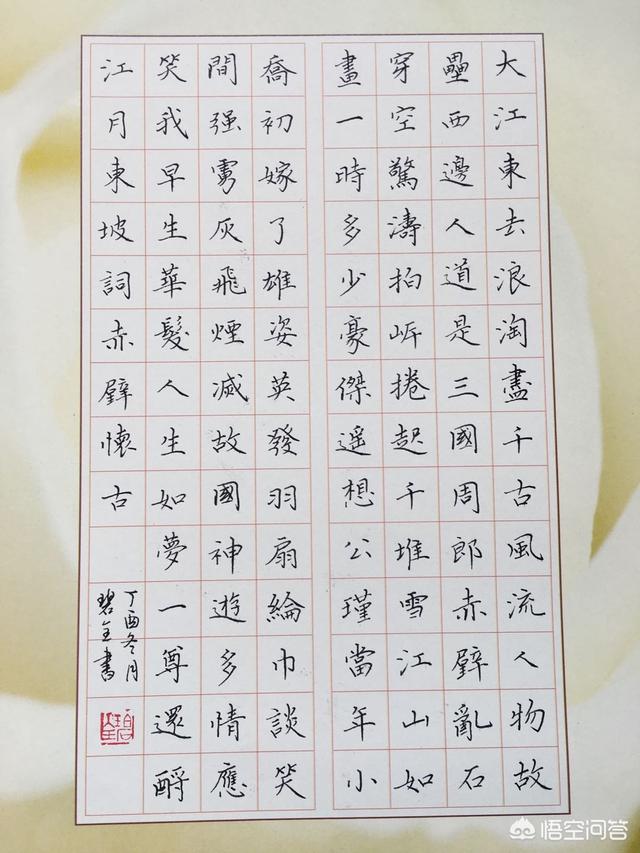 大江東去浪淘盡千古風流人物故
壘西邊人道是三國周郎赤壁亂石
穿空驚濤拍岍捲起千堆雪江山如
畫一時多少豪傑遥想公瑾當年小
喬初嫁了雄姿英發羽扇綸巾談笑
間强虜灰飛煙滅故國神遊多情應
笑我早生華髮人生如夢一尊還酹
江月東坡詞赤壁懷古
丁酉冬月
碧全書
悟空问答